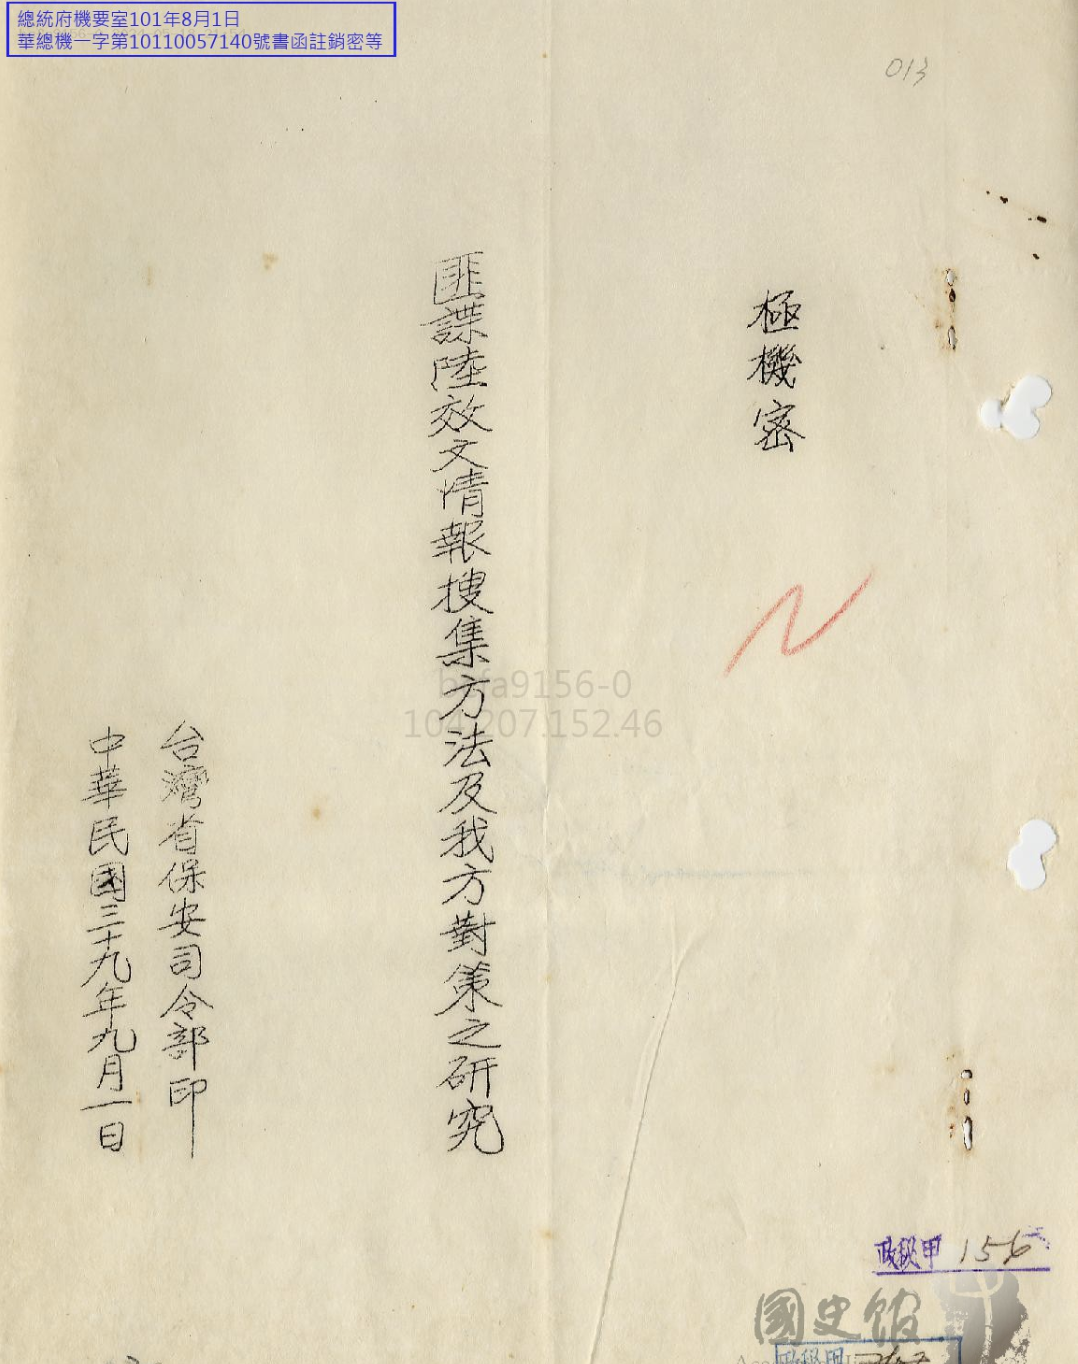 總統府機要室101年8月1日
華總機一字第10110057140號書函註銷密等
013
極機密
匪諜陸效文情報搜集方法及我方對策之研究
台灣省保安司令部印
中華民國三十九年九月一日
104.207.152.46
政級甲 156
國史館